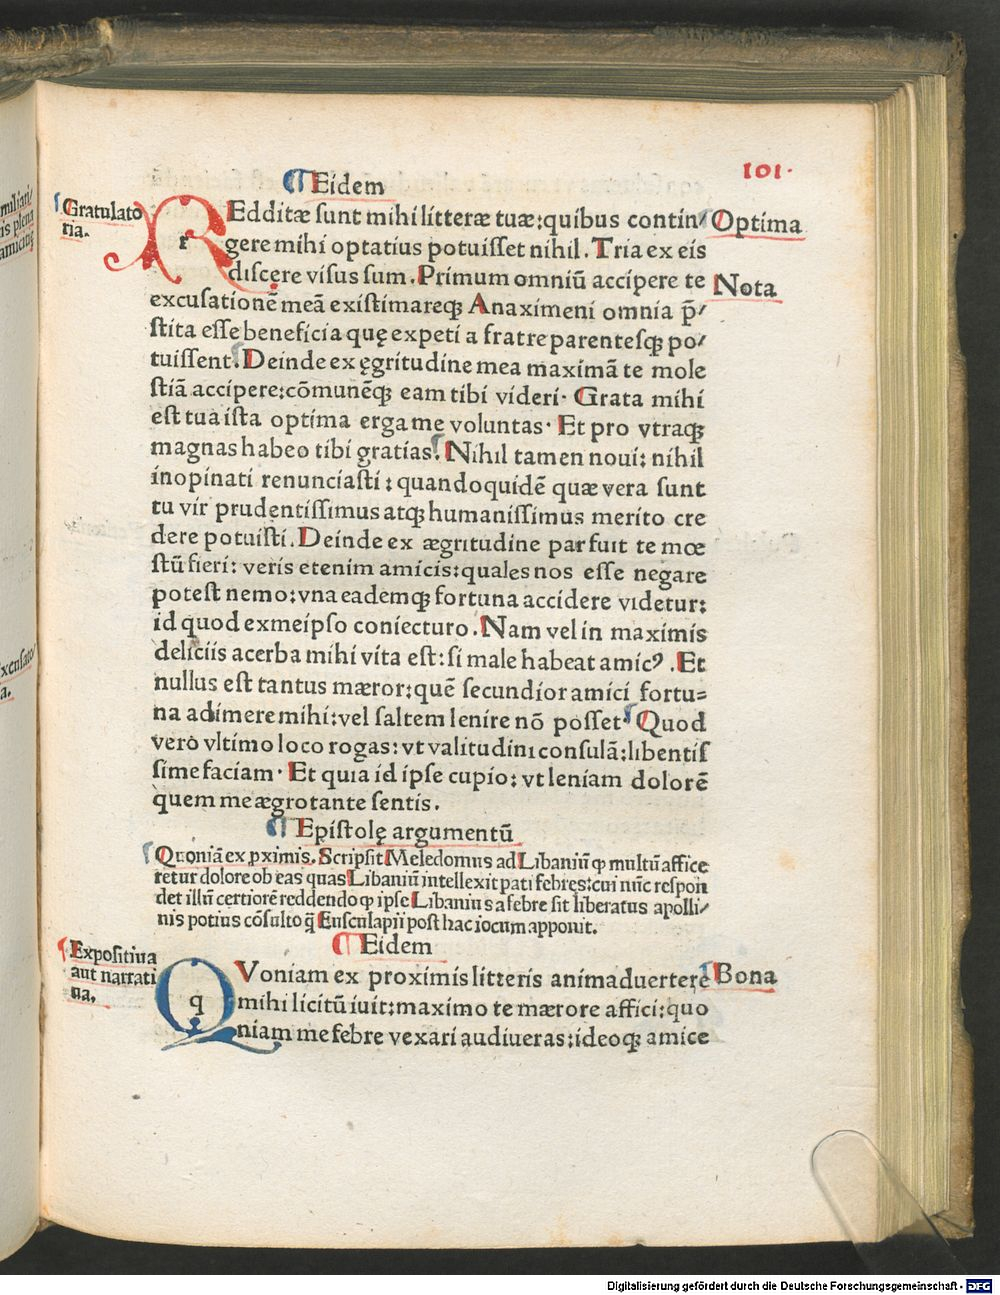 101.
¶ Eidem
Gratulato
ria.
REdditæ sunt mihi litteræ tuæ: quibus contin/
gere mihi optatius potuisset nihil. Tria ex eis
discere visus sum. Primum omniū accipere te
excusationē meā existimareqꝫ Anaximeni omnia p̄/
stita esse beneficia quę expeti a fratre parentesqꝫ po/
tuissent. Deinde ex ęgritudine mea maximā te mole
stiā accipere: cōmunēqꝫ eam tibi videri. Grata mihi
est tua ista optima erga me voluntas. Et pro vtraqꝫ
magnas habeo tibi gratias. Nihil tamen noui: nihil
inopinati renunciasti: quandoquidē quæ vera sunt
tu vir prudentissimus atqꝫ humanissimus merito cre
dere potuisti. Deinde ex ægritudine par fuit te mœ
stū fieri: veris etenim amicis: quales nos esse negare
potest nemo: vna eademqꝫ fortuna accidere videtur:
id quod ex meipso coniecturo. Nam vel in maximis
deliciis acerba mihi vita est: si male habeat amicꝰ. Et
nullus est tantus mæror: quē secundior amici fortu=
na adimere mihi: vel saltem lenire nō posset. Quod
vero vltimo loco rogas: vt valitudini consulā: libentis
sime faciam. Et quia id ipse cupio: vt leniam dolorē
quem me ægrotante sentis.
Optima
Nota
¶ Epistolę argumentū
Quoniā ex ꝓximis. Scripsit Meledomus ad Libaniū ꝙ multū affice
retur dolore ob eas quas Libaniū intellexit pati febres: cui nūc respon
det illū certiorē reddendo ꝙ ipse Libanius a febre sit liberatus apolli/
nis potius cōsulto q̄ Eusculapii post hac iocum apponit.
¶ Eidem
Expositiua
aut narrati
ua.
QVoniam ex proximis litteris animaduertere
mihi licitū iuit: maximo te mærore affici: quo
niam me febre vexari audiueras: ideoqꝫ amice
Bona
miliari/
is plena
amicitię
Excusato/
a.
Digitalisierung gefördert durch die Deutsche Forschungsgemeinschaft - DFG